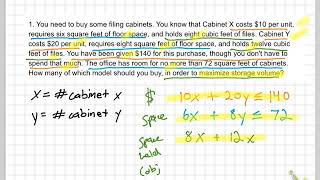 1. You need to buy some filing cabinets. You know that Cabinet X costs $10 per unit,
requires six square feet of floor space, and holds eight cubic feet of files. Cabinet Y
costs $20 per unit, requires eight square feet of floor space, and holds twelve cubic
feet of files. You have been given $140 for this purchase, though you don't have to
spend that much. The office has room for no more than 72 square feet of cabinets.
How many of which model should you buy, in order to maximize storage volume?
x = # cabinet x $ 10x + 20y ≤ 140
y = # cabinet y space 6x + 8y ≤ 72
space 8x + 12x
held
(obj